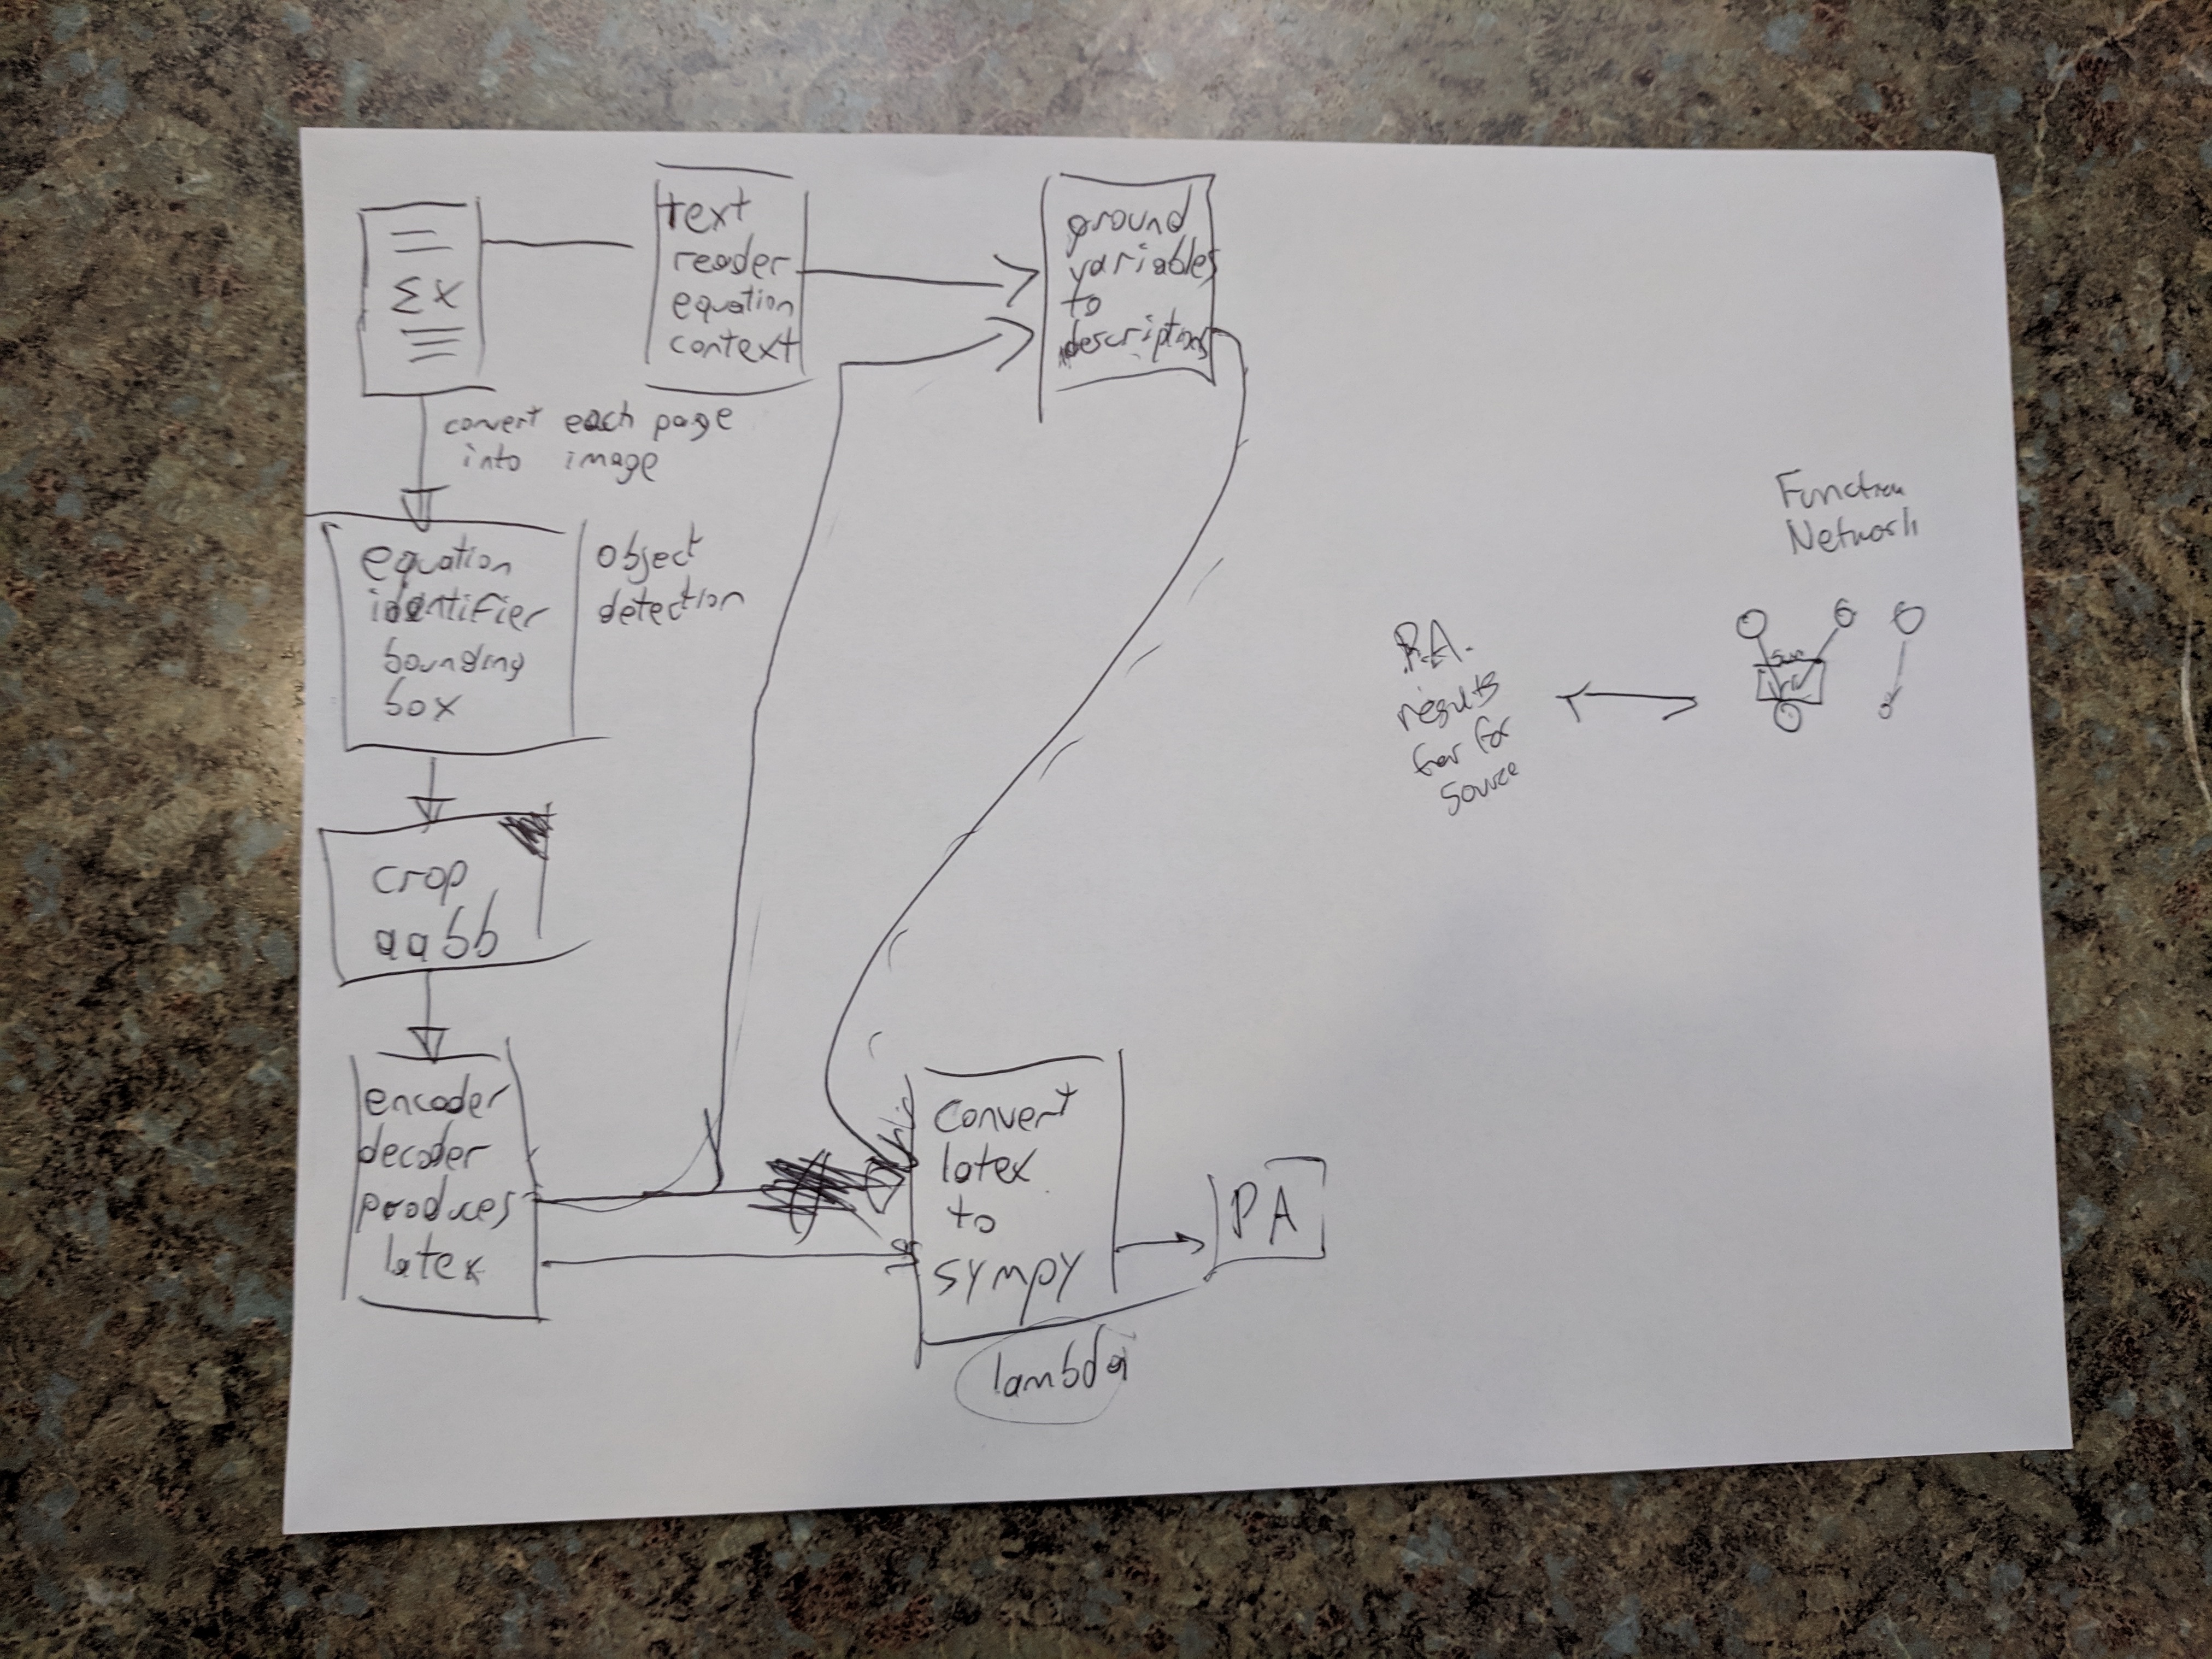 Σx
text
reader
equation
context
ground
variables
to
descriptions
convert each page
into image
equation
identifier
bounding
box
object
detection
crop
aabb
encoder
decoder
produces
latex
convert
latex
to
sympy
lambda
PA
P.A.
results
for
source
Function
Network